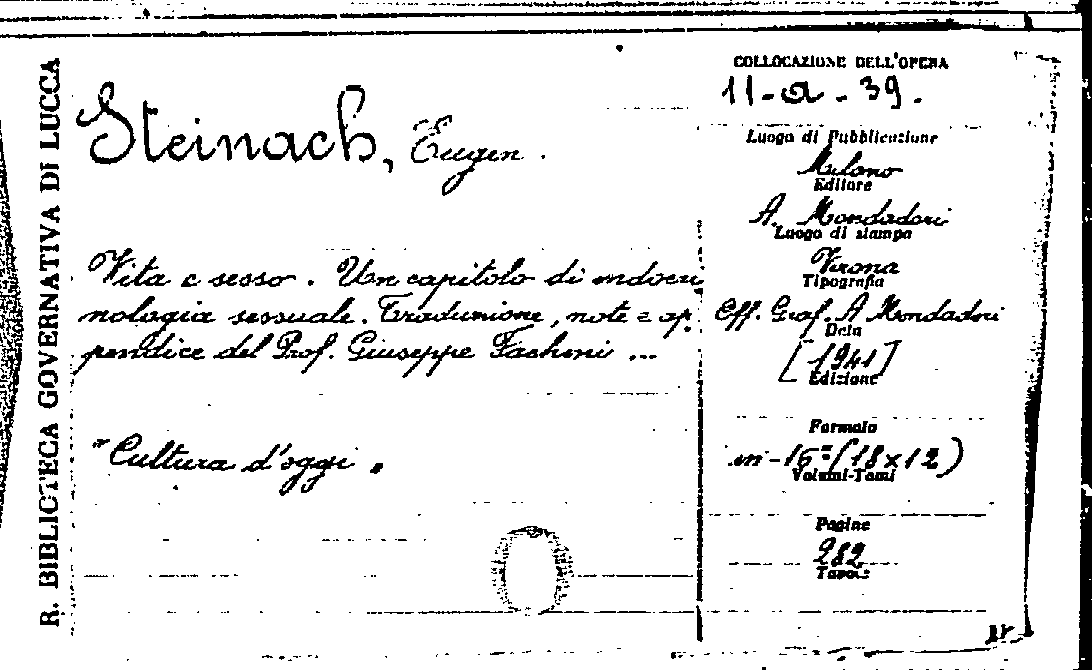 R. BIBLIOTECA GOVERNATIVA DI LUCCA
Steinach, Eugen.
Vita e sesso. Un capitolo di endocri
nologia sessuale. Traduzione, note e ap
pendice del Prof. Giuseppe Fachini ...
"Cultura d'oggi"
COLLOCAZIONE DELL'OPERA
11-a-39.
Luogo di Pubblicazione
Milano
Editore
A. Mondadori
Luogo di stampa
Verona
Tipografia
Off. Graf. A Mondadori
Data
[1941]
Edizione
Formato
in-16º(18x12)
Volumi-Tomi
Pagine
282
Tavole